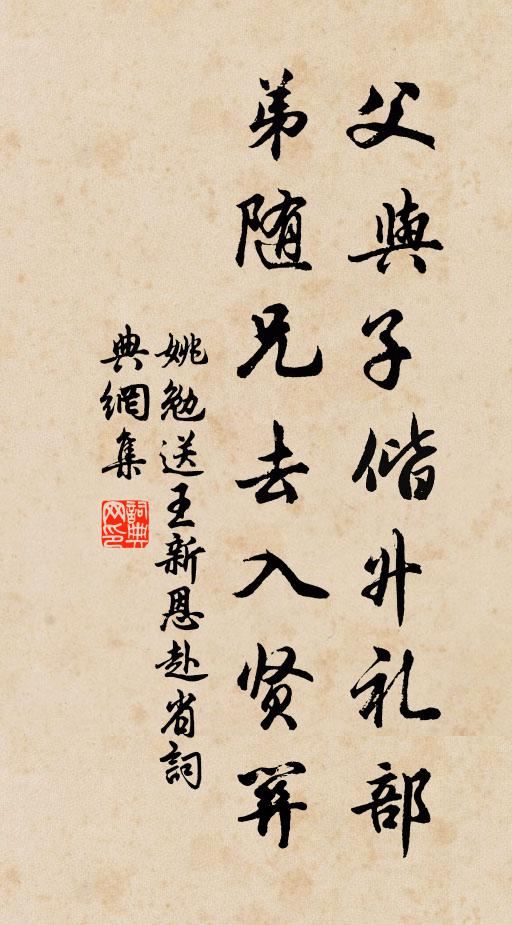 父與子偕升礼部
弟随兄去入贤關
姚勉送王新恩赴省詞
典網集
詞典网印